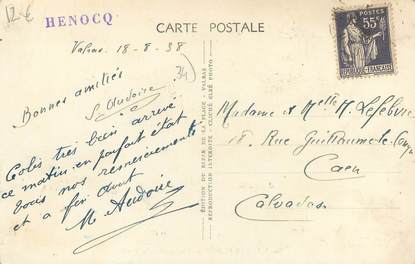 12 €
HENOCQ
CARTE POSTALE
Valras 18-8-38
34
POSTES
55c
REPUBLIQUE FRANÇAISE
Bonnes amitiés
S. Audoire
Colis très bien arrivé
ce matin en parfait état
voici nos remerciements
et a fin
M Audoire
EDITION DU BAZAR DE LA PLAGE - VALRAS
REPRODUCTION INTERDITE - CLICHÉ PHOTO
Madame et Melle M. Lefebvre
18, Rue Guillaume-le-Conq
Caen
Calvados